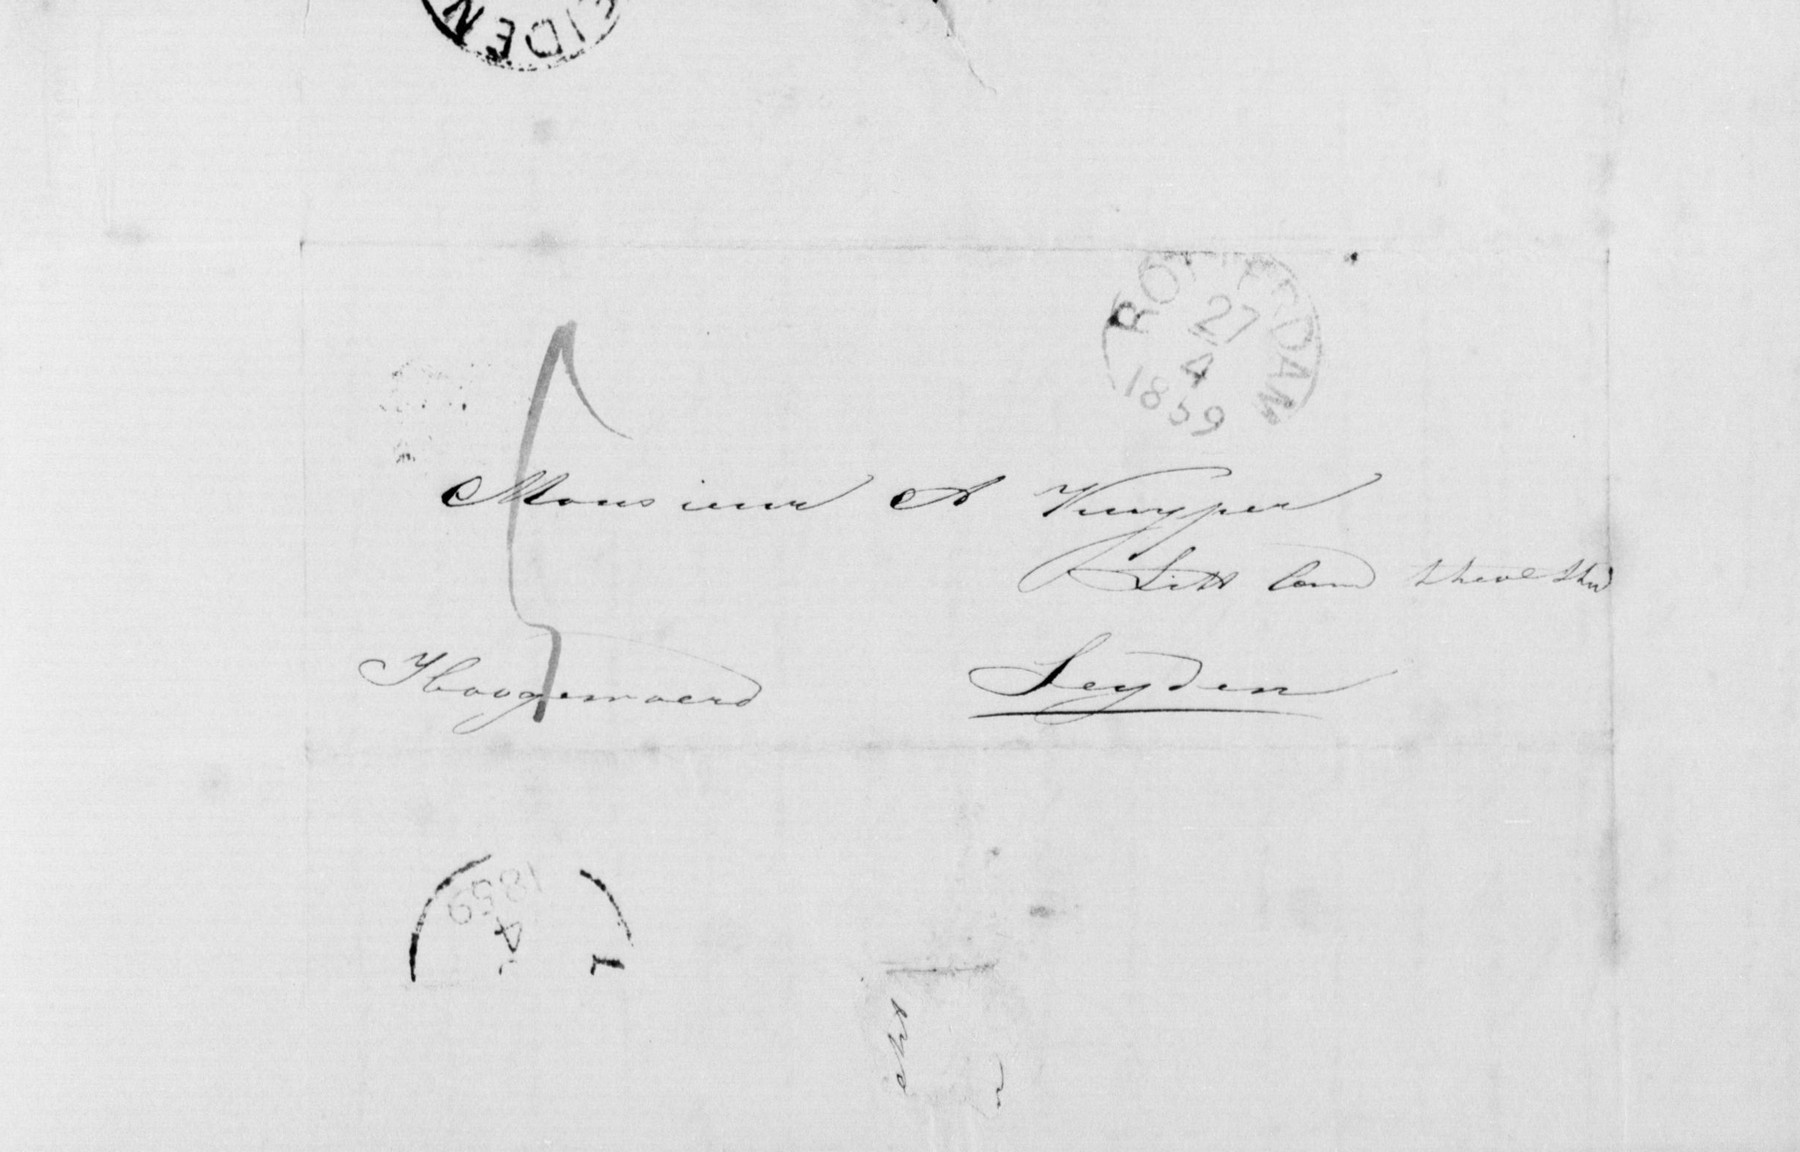 EIDEN
ROTTERDAM
27
4
1859
Monsieur A Kuyper
Litt Cand Theol Stud
Hoogewoerd Leyden
1859
4
L